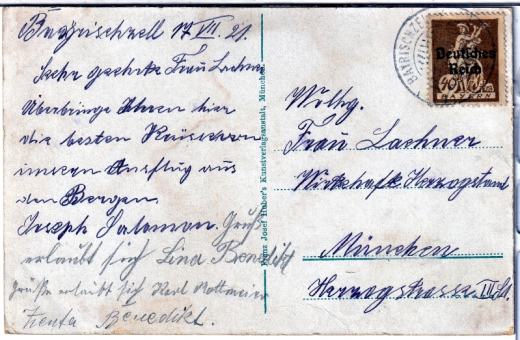 Bayrischzell 17 VII. 21.
Sehr geehrte Frau Lachner
Überbringe Ihnen hier
die besten
Ausflug aus
den Bergen
Joseph Salomon. Gruß
erlaubt sich Lina Benedikt
Grüße erlaubt sich Karl Rottmeier
Zenta Benedikt.
Franz Josef Huber's Kunstverlagsanstalt, München.
BAYRISCHZELL
Deutsches
Reich
40
BAYERN
Wolhg.
Frau Lachner
Wirtschaft Herzogstand
München
Herzogstrasse III St.